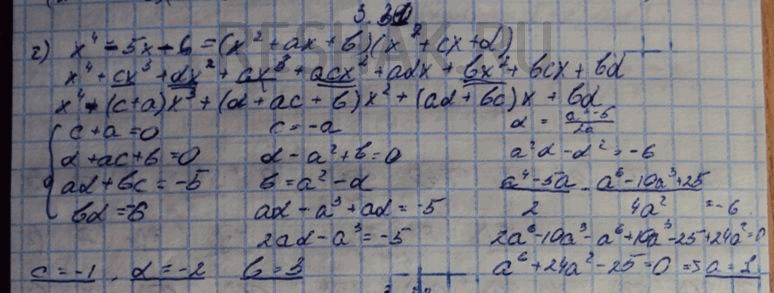 3.31
г) x⁴ - 5x - 6 = (x² + ax + b)(x² + cx + d)
x⁴ + cx³ + dx² + ax³ + acx² + adx + bx² + bcx + bd
x⁴ + (c+a)x³ + (d + ac + b)x² + (ad + bc)x + bd
c + a = 0
d + ac + b = 0
ad + bc = -5
bd = -6
c = -a
d - a² + b = 0
b = a² - d
ad - a³ + ad = -5
2ad - a³ = -5
a²d - d² = -6
(a⁴ - 5a)/2 - (a⁶ - 10a³ + 25)/4a² = -6
2a⁶ - 10a³ - a⁶ + 10a³ - 25 + 24a² = 0
a⁶ + 24a² - 25 = 0 => a = 1
c = -1 d = -2 b = 3